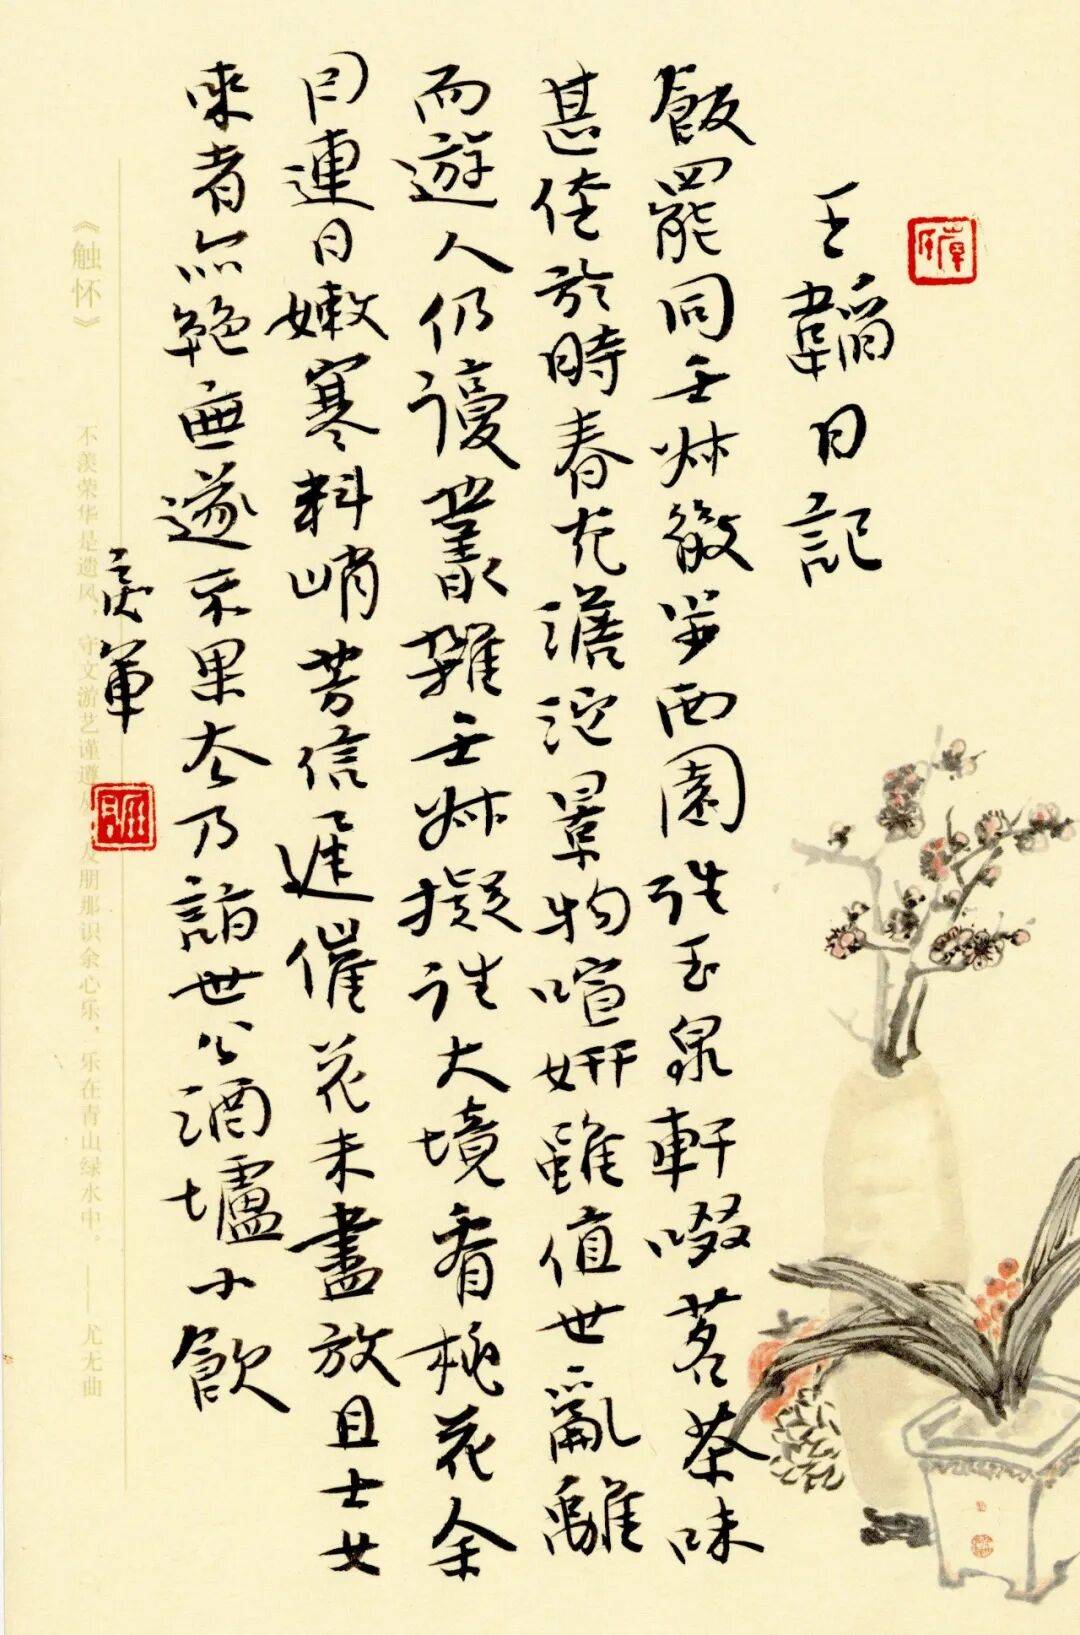 王韜日記
飯罷同壬叔散步西園往玉泉軒啜茗茶味
甚佳於時春光澹沱景物喧妍雖值世亂離
而遊人仍復叢雜壬叔擬往大境看桃花余
曰連日嫩寒料峭芳信遲催花未盡放且士女
來者亦絕無遂不果去乃詣世公酒壚小飲
《触怀》
不羡荣华是遗风，守文游艺谨遵 及朋那识余心乐，乐在青山绿水中。——尤无曲